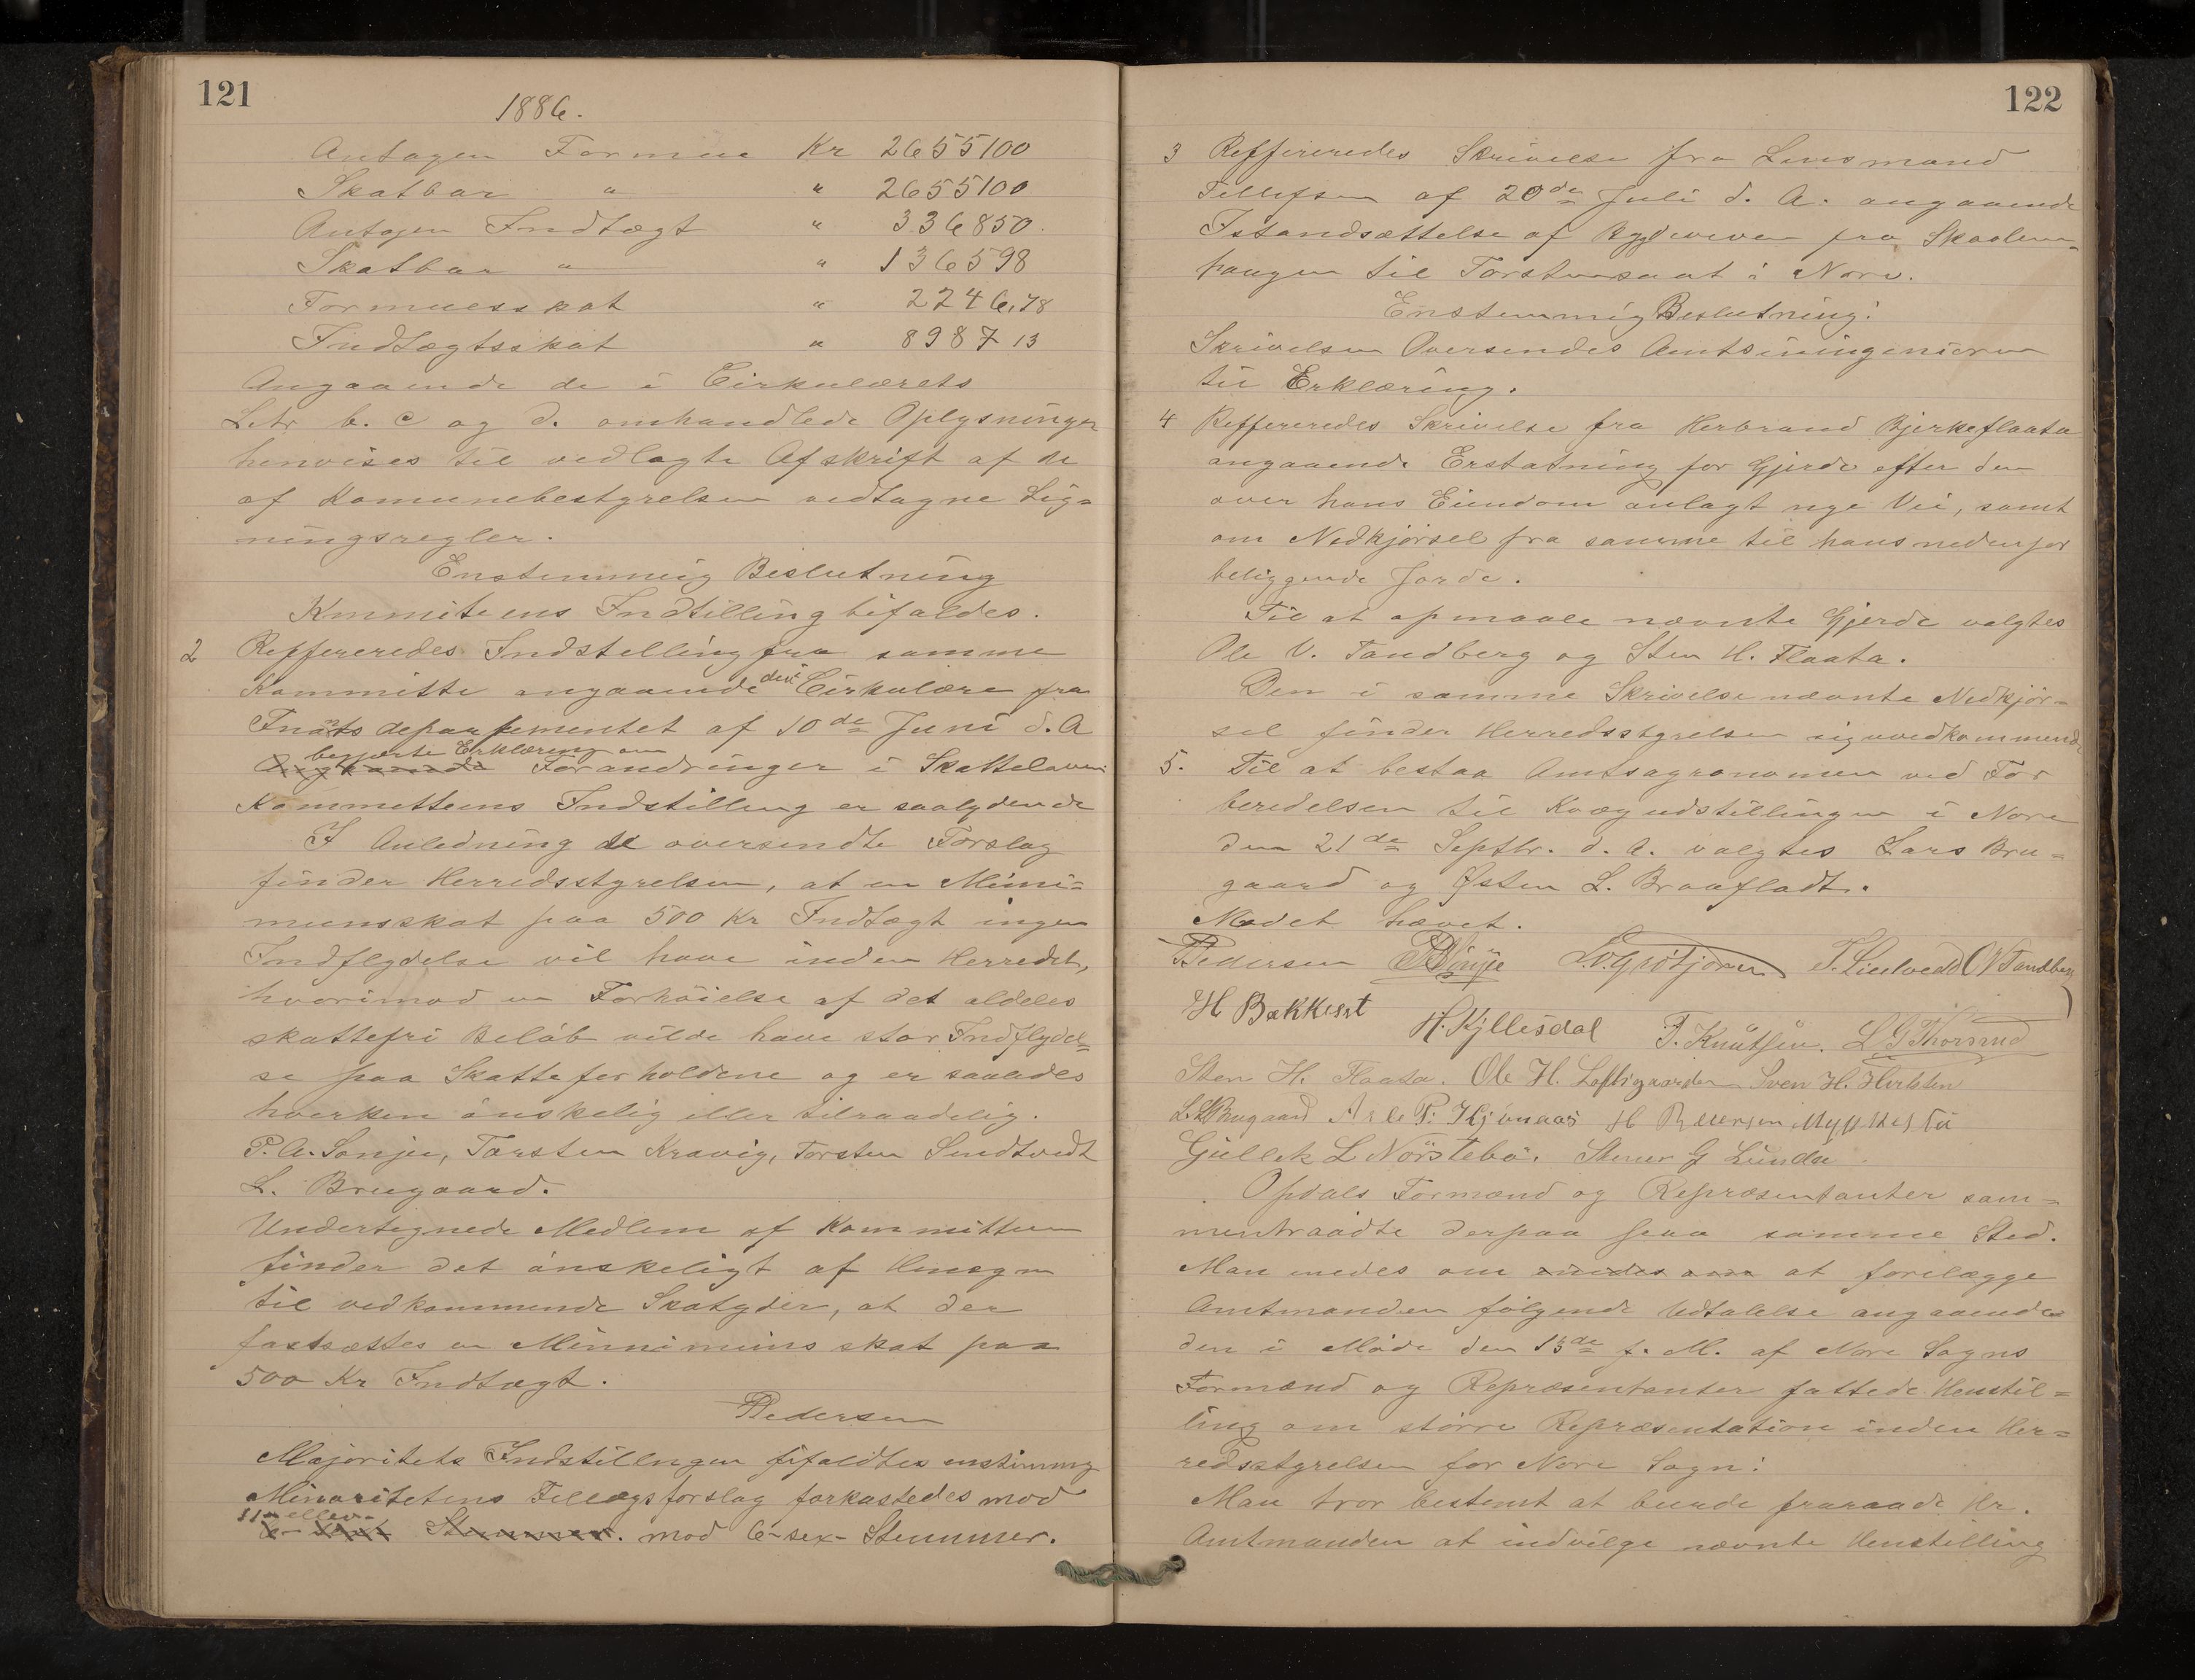 121
1886.
Antagen Formue Kr 2655100
Skatbar " " 2655100
Antagen Indtægt " 336850.
Skatbar " " 136598
Formuesskat " 2246,78
Indtægtsskat " 8987 13
Angaaende de i Cirkulærets
Litr b. c og d. omhandlede Oplysninger
henvises til vedlagte Afskrift af de
af Komunebestyrelsen vedtagne Lig=
ningsregler.
Enstemmig Beslutning
Kmmiteens Indstilling bifaldes.
2 Reffereredes Indstelling fra samme
Kommitte angaaende det Cirkulære fra
af 10de Juni d. A
begjærte Erklæring om
Forandringer i Skatteloven
Kommitteens Indstilling er saalydende
I Anledning de oversendte Forslag
finder Herredsstyrelsen, at en Mini=
mumsskat paa 500 Kr Indtægt ingen
Indflydelse vil have inden Herredet,
hvorimod en Forhöielse af det aldeles
skattefri Beløb vilde have stor Indflydel=
se paa Skatteforholdene og er saaledes
hverken ónskelig eller tilraadelig.
P. A. Sønju, Torsten Kravig, Torsten Sendtvedt
L. Brugaard.
Undertegnede Medlem af Kommitteen
finder det ónskeligt af Hensyn
til vedkommende Skatyder, at der
fastsættes en Minnimums skat paa
500 Kr Indtægt.
PPedersen
Majoritets Indstillngen bifaldtes enstemmig
Minoritetens Tillægsforslag forkastedes mod
11-elleve-
Stemmer. mod 6-sex- Stemmer.
122
3 Reffereredes Skrivelse fra Lensmand
Tellefsen af 20de Juli d. A. angaaende
Istandsættelse af Bygdeveien fra Skaalem=
haugen til Torstensaat i Nore.
Enstemmig Beslutning:
Skrivelsen Oversendes Amtsiningeniøren
til Erklæring.
4 Reffereredes Skrivelse fra Herbrand Bjerkeflaata
angaaende Erstatning for Gjerde efter den
over hans Eiendom anlagt nye Vei, samt
om Nedkjørsel fra samme til hans nedenfor
beliggende Jorde.
Til at opmaale nævnte Gjerde valgtes
Ole V. Tandberg og Sten H. Flaata.
Den i samme Skrivelse nævnte Nedkjør=
sel finder Herredsstyrelsen sig uvedkommende
5. Til at bestaa Amtsagronomen ved For
beredelsen til Kvægudstillingen i Nore
den 21de Septbr. d. A. valgtes Lars Bru=
gaard og Østen L. Braafladt.
Mødet hævet.
PPedersen T. Lindvedd OVTandberg
H Bækkeset H. Kjllesdal T. Knutsen. L G Thorsrud
Sten H. Flaata. Ole H. Loftsgaarden Sven H.
L. LBrugaard Asle P. Kjönaas H Pettersen Myhrestu
Gúllek L Nörstebö. Stener G Lunde
Opdals Formænd og Repræsentanter sam=
mentraadte derpaa paa samme Sted.
Man enedes om enedes om at forelægge
Amtmanden følgende Udtalelse angaaende
den i Møde den 13de f. M. af Nore Sogns
Formænd og Repræsentanter fattede Henstil=
ling om større Repræsentation inden Her=
redsstyrelsen for Nore Sogn:
Man tror bestemt at burde fraraade Hr.
Amtmanden at indvilge nævnte Henstilling